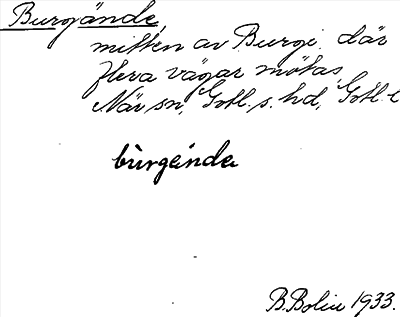 Burgände,
mitten av Burge. där
flera vägar mötas,
När sn, Gotl. s. hd, Gotl. l
bùrgeinda
B. Bolin 1933.